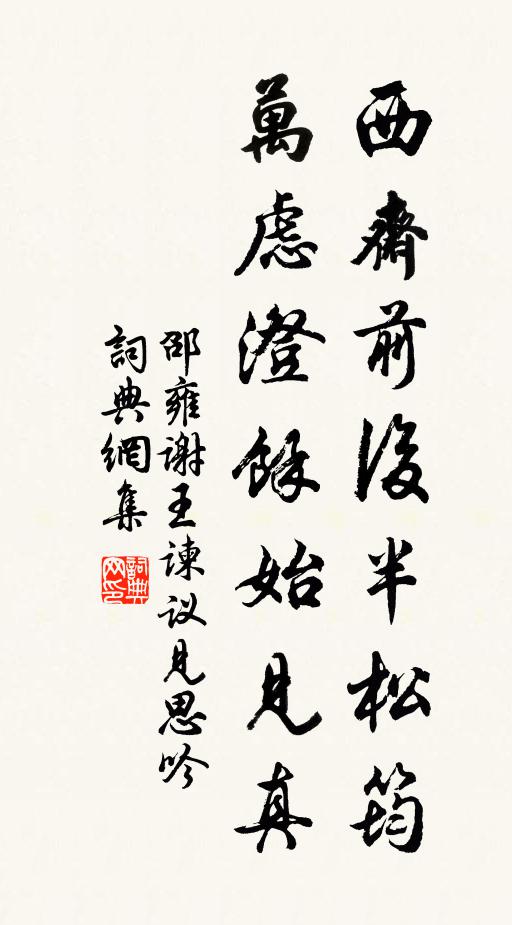 西齋前後半松筠
萬慮澄餘始見真
邵雍謝王諫议見思吟
詞典網集
詞典网印